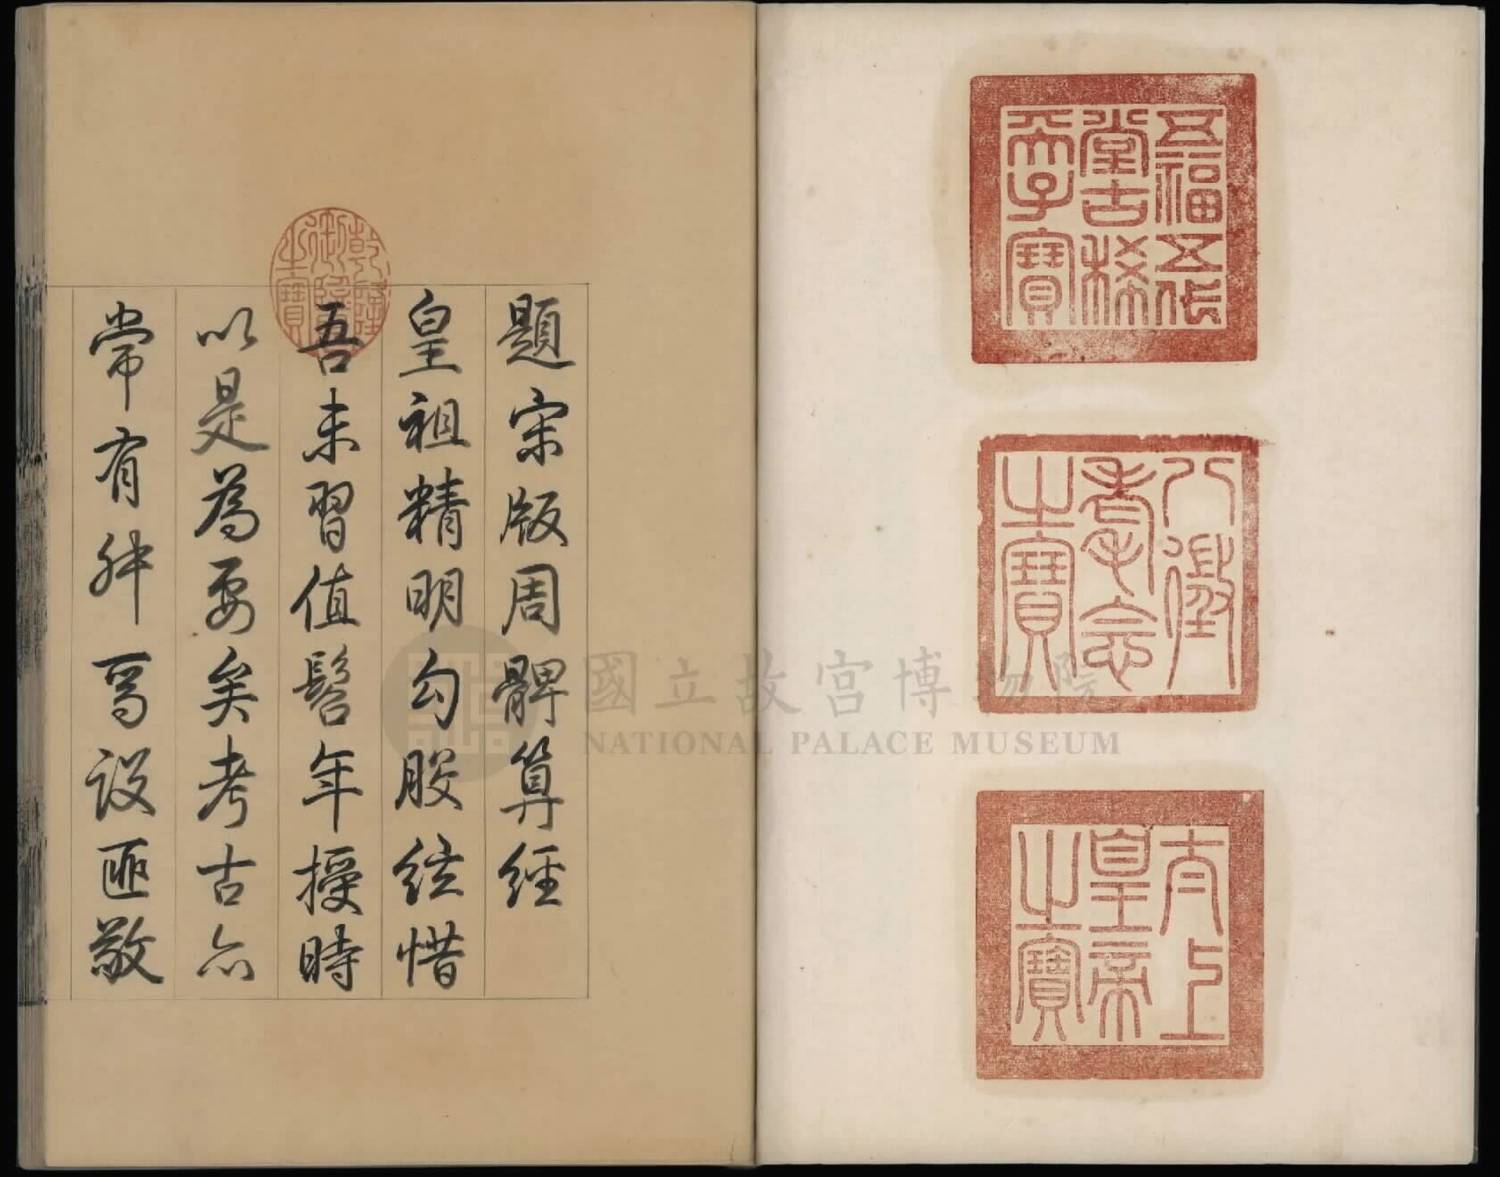 五福五代
堂古稀
天子寶
八徵
耄念
之寶
太上
皇帝
之寶
乾隆
御覽
之寶
題宋版周髀算經
皇祖精明勾股絃惜
吾未習值髫年授時
以是為要矣考古亦
常有舛焉設匪敬
國立故宮博物院
NATIONAL PALACE MUSEUM